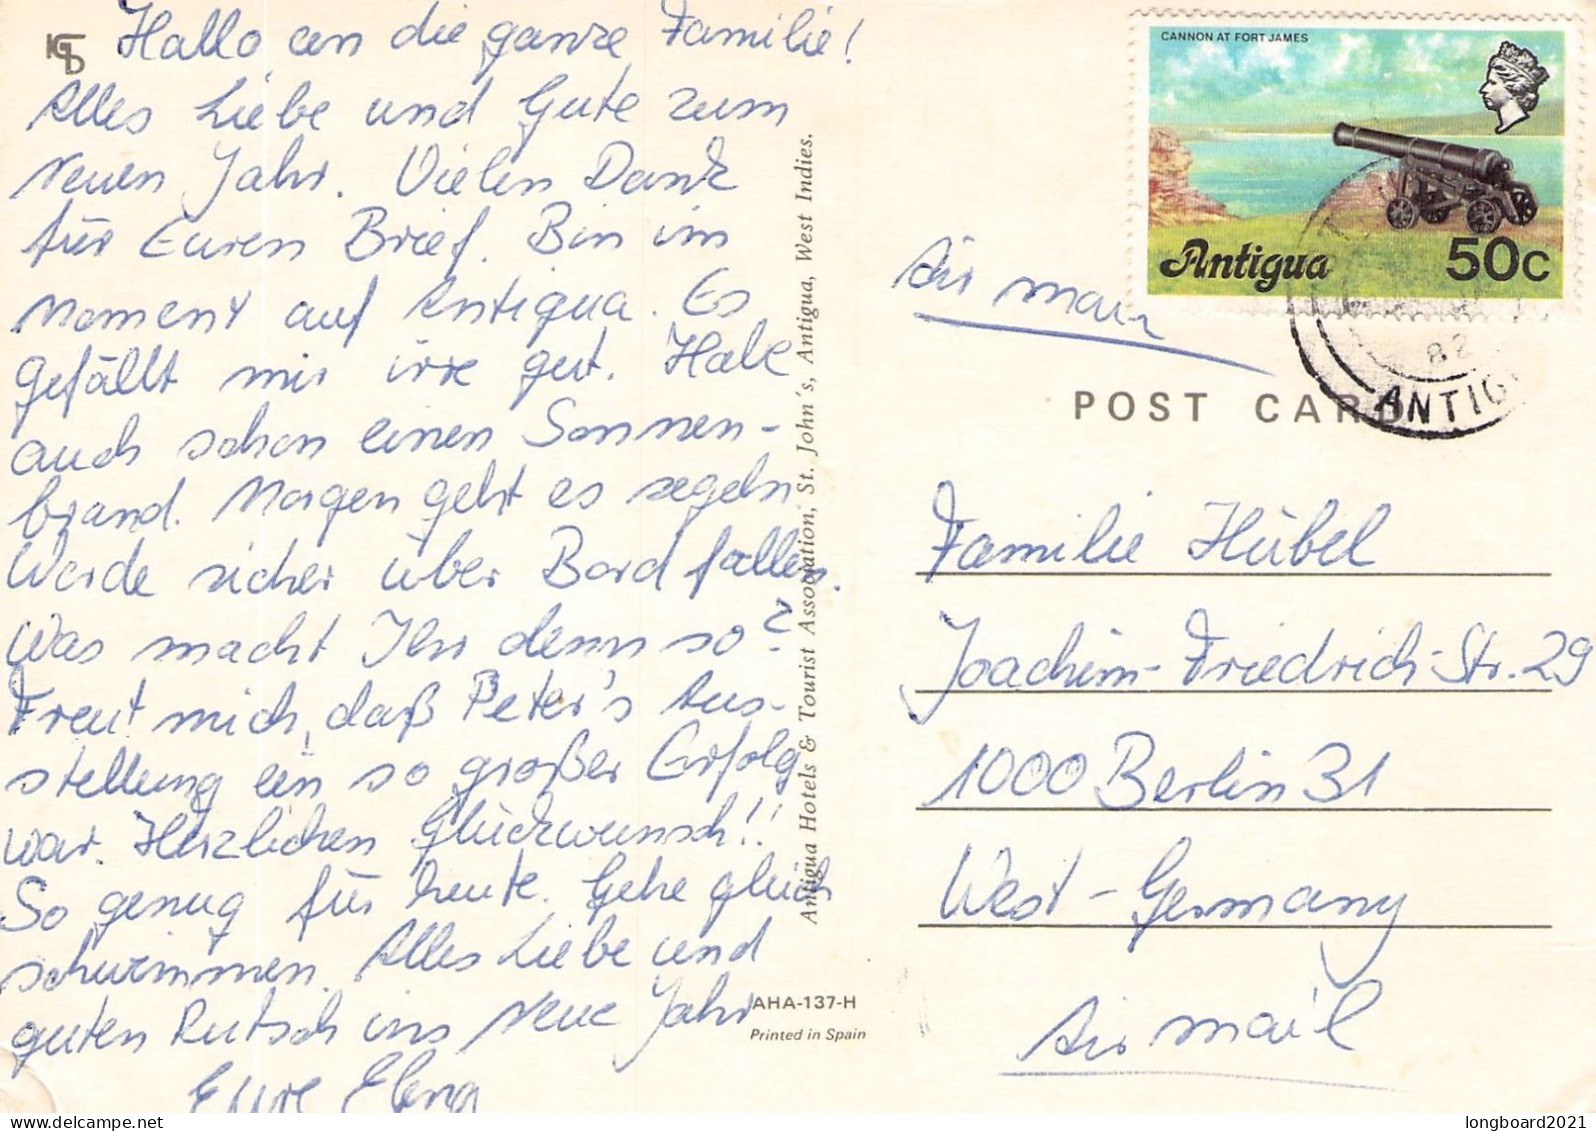 Hallo an die ganze Familie!
Alles Liebe und Gute zum
Neuen Jahr. Vielen Dank
für Euren Brief. Bin im
Moment auf Antigua. Es
gefällt mir irre gut. Habe
auch schon einen Sonnen-
brand. Morgen geht es segeln
Werde sicher über Bord fallen.
Was macht Ihr denn so?
Freut mich, daß Peter's Aus-
stellung ein so großer Erfolg
war. Herzlichen Glückwunsch!!
So genug für heute. Gehe gleich
schwimmen. Alles Liebe und
guten Rutsch ins Neue Jahr
Eure Elena
Antigua Hotels & Tourist Association, St. John's, Antigua, West Indies.
AHA-137-H
Printed in Spain
CANNON AT FORT JAMES
Antigua 50c
1976
82
ANTIG
Air mail
POST CARD
Familie Hübel
Joachim-Friedrich-Str. 29
1000 Berlin 31
West-Germany
Air mail
longboard2021